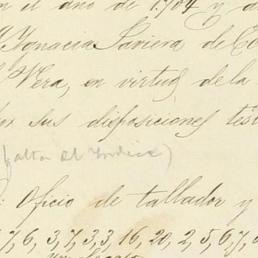 en el año de 1.704 y a
Ygnacia Javiera de Co
Vera, en virtud de la
por sus disposiciones tes
(falta el Indice)
: Oficio de tallador y
7, 6, 3, 7, 3, 3, 16, 20, 2, 5, 6, 7,